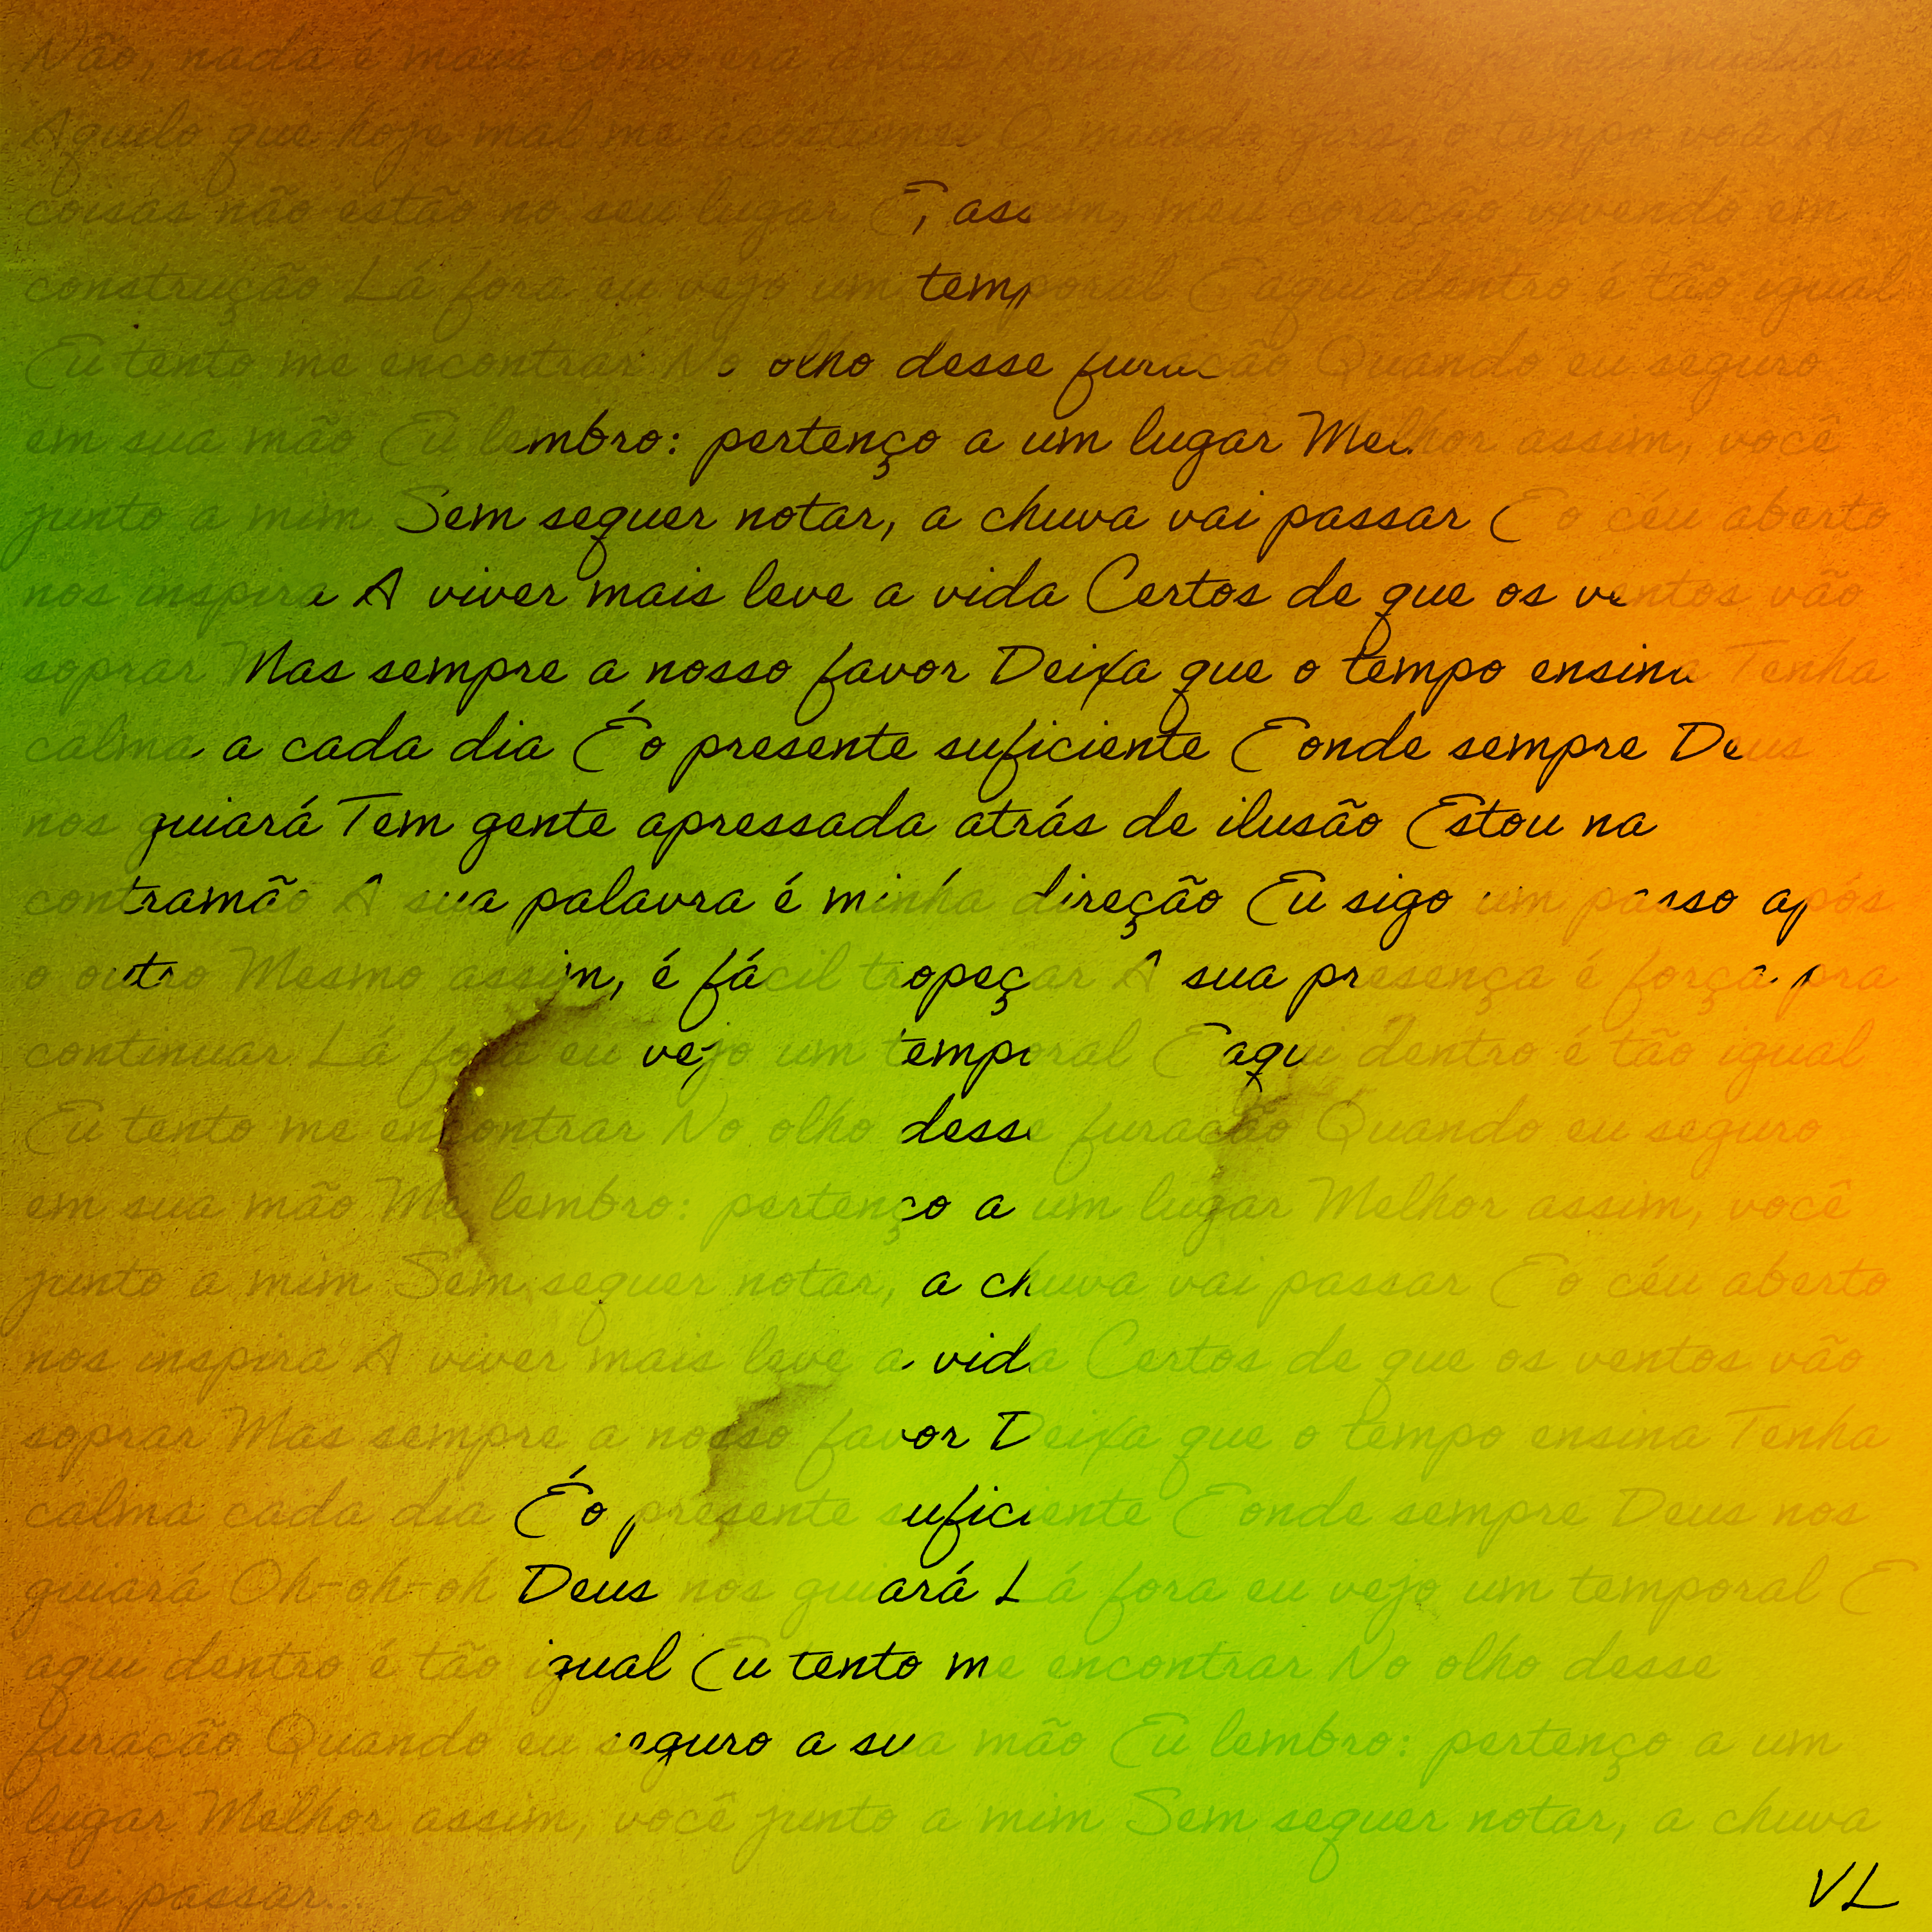 Não, nada é mais como era antes Amanhã, eu sei, já vai mudar
Aquilo que hoje mal me acostumei O mundo gira, o tempo voa As
coisas não estão no seu lugar E, assim, meu coração vivendo em
construção Lá fora eu vejo um temporal E aqui dentro é tão igual
Eu tento me encontrar No olho desse furacão Quando eu seguro
em sua mão Eu lembro: pertenço a um lugar Melhor assim, você
junto a mim Sem sequer notar, a chuva vai passar E o céu aberto
nos inspira A viver mais leve a vida Certos de que os ventos vão
soprar Mas sempre a nosso favor Deixa que o tempo ensina Tenha
calma a cada dia É o presente suficiente E onde sempre Deus
nos guiará Tem gente apressada atrás de ilusão Estou na
contramão A sua palavra é minha direção Eu sigo um passo após
o outro Mesmo assim, é fácil tropeçar A sua presença é força pra
continuar Lá fora eu vejo um temporal E aqui dentro é tão igual
Eu tento me encontrar No olho desse furacão Quando eu seguro
em sua mão Me lembro: pertenço a um lugar Melhor assim, você
junto a mim Sem sequer notar, a chuva vai passar E o céu aberto
nos inspira A viver mais leve a vida Certos de que os ventos vão
soprar Mas sempre a nosso favor Deixa que o tempo ensina Tenha
calma cada dia É o presente suficiente E onde sempre Deus nos
guiará Oh-oh-oh Deus nos guiará Lá fora eu vejo um temporal E
aqui dentro é tão igual Eu tento me encontrar No olho desse
furacão Quando eu seguro a sua mão Eu lembro: pertenço a um
lugar Melhor assim, você junto a mim Sem sequer notar, a chuva
vai passar...
VL